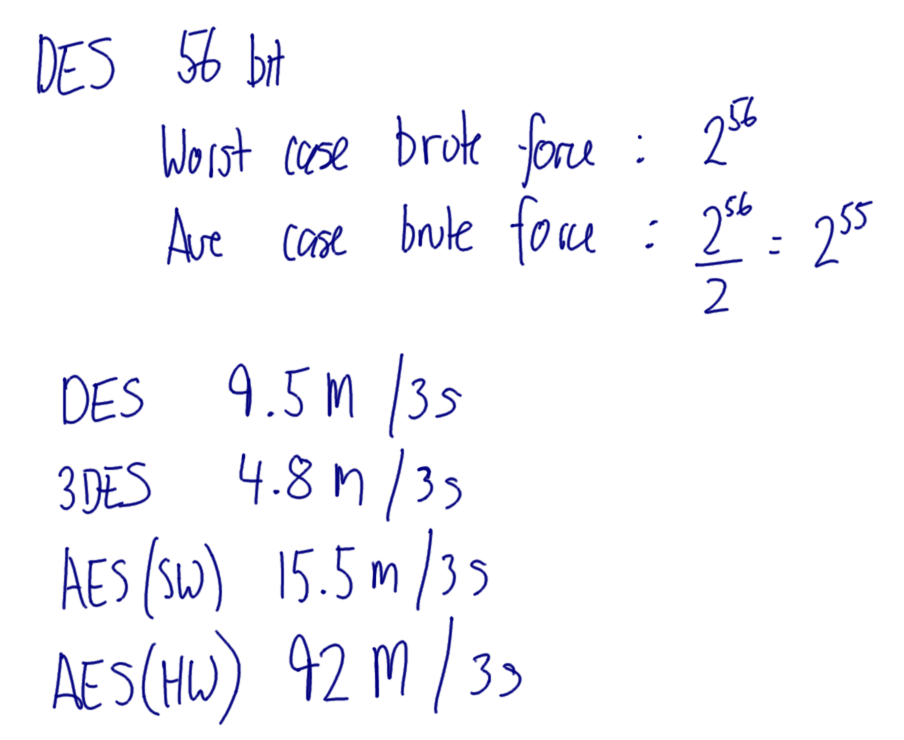 DES 56 bit
Worst case brute force : 2^56
Ave case brute force : 2^56/2 = 2^55
DES 9.5 m /3s
3DES 4.8 m /3s
AES(SW) 15.5 m /3s
AES(HW) 92 M /3s